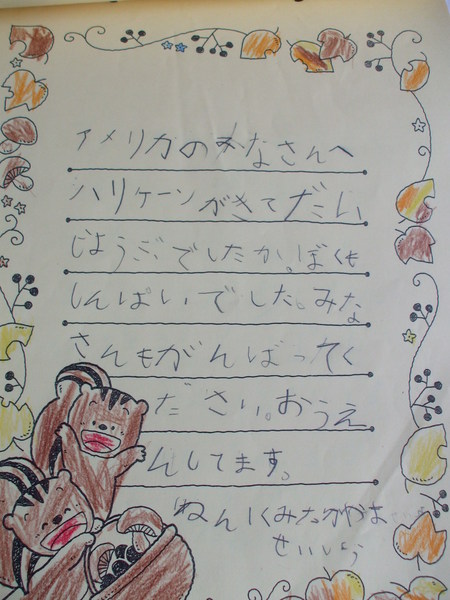 アメリカのみなさんへ
ハリケーンがきてだい
じょうぶでしたか。ぼくも
しんぱいでした。みな
さんもがんばってく
ださい。おうえ
んしてます。
せいしろう